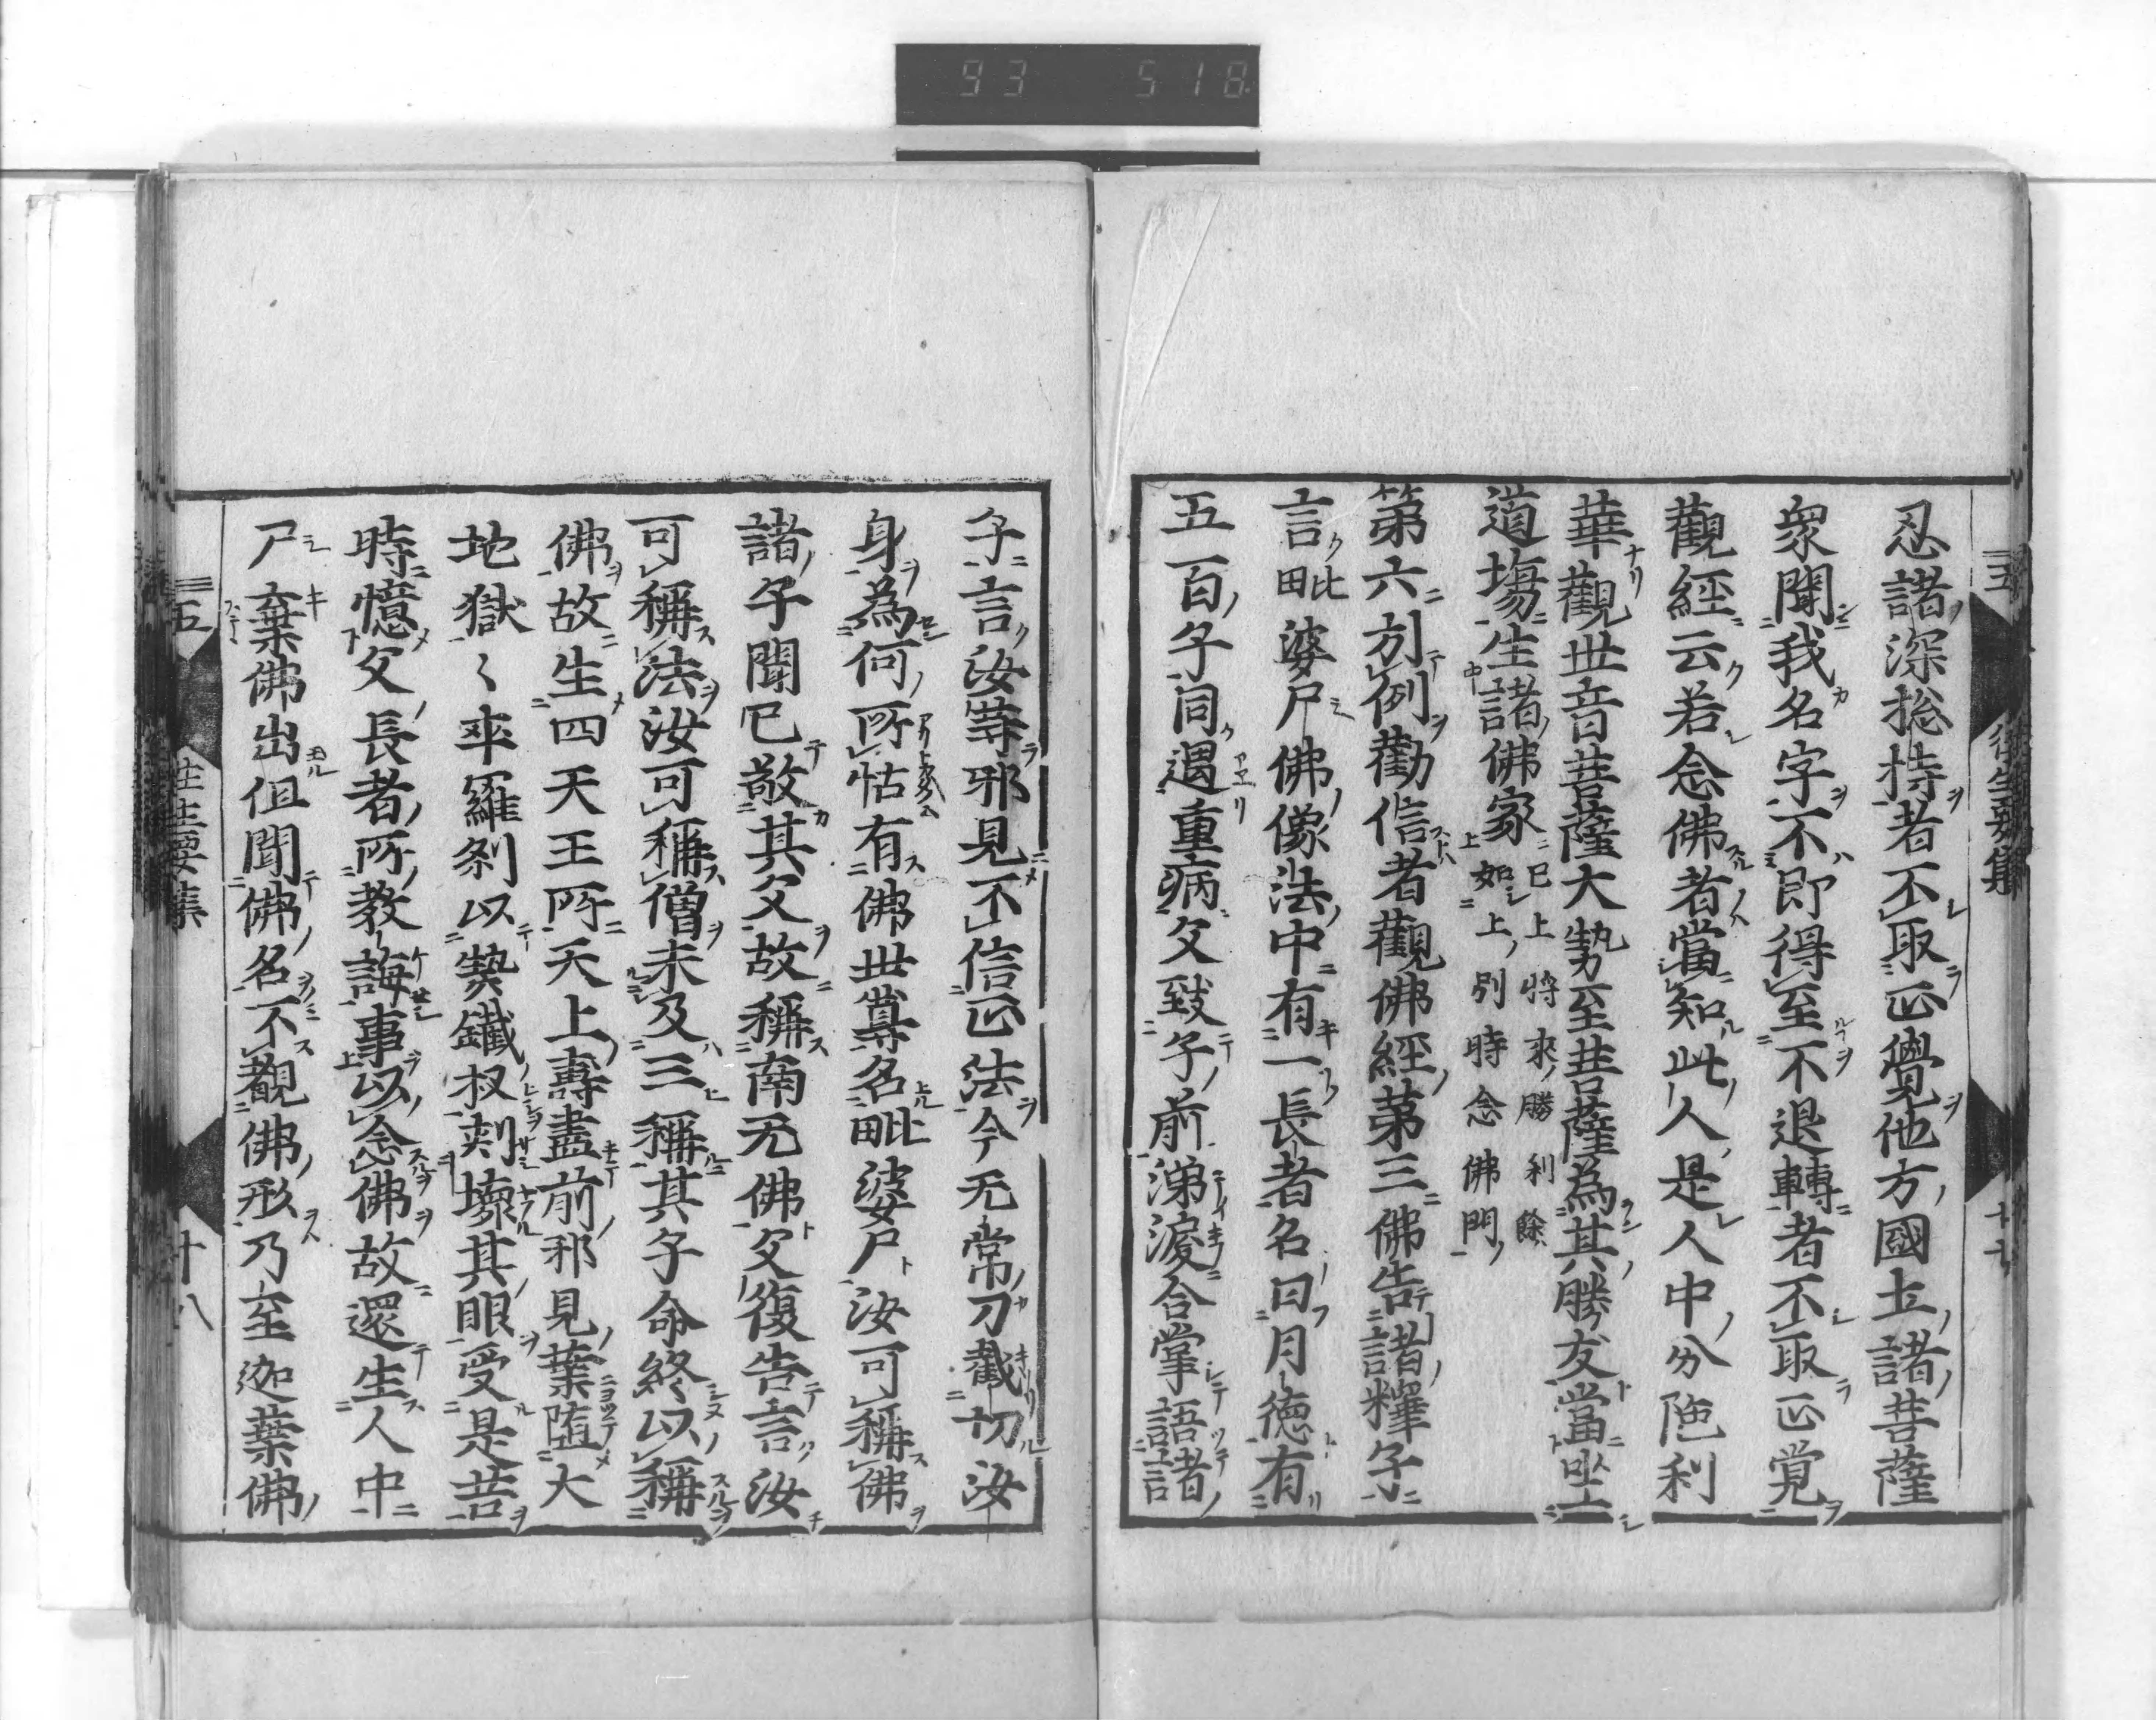 93 518
忍諸深総持者不取正覺他方國土諸菩薩
衆聞我名字不即得至不退轉者不取正覚
觀經云若念佛者當知此人是人中分陁利
華觀世音菩薩大勢至菩薩為其勝友當坐
道場生諸佛家
已上將來勝利餘
如上別時念佛門
第六引例勸信者觀佛經第三佛告諸釋子
言毗婆尸佛像法中有一長者名曰月徳有
五百子同遇重病父到子前涕淚合掌語諸
子言汝等邪見不信正法今无常刀截切汝
身為何所怙有佛世尊名毗婆尸汝可稱佛
諸子聞已敬其父故稱南无佛父復告言汝
可稱法汝可稱僧未及三稱其子命終以稱
佛故生四天王所天上壽盡前邪見業堕大
地獄〻卒羅刹以𤍠鐵杈刾壞其眼受是苦
時憶父長者所教誨事以念佛故還生人中
尸棄佛出但聞佛名不覩佛形乃至迦葉佛
五 往生要集 十八